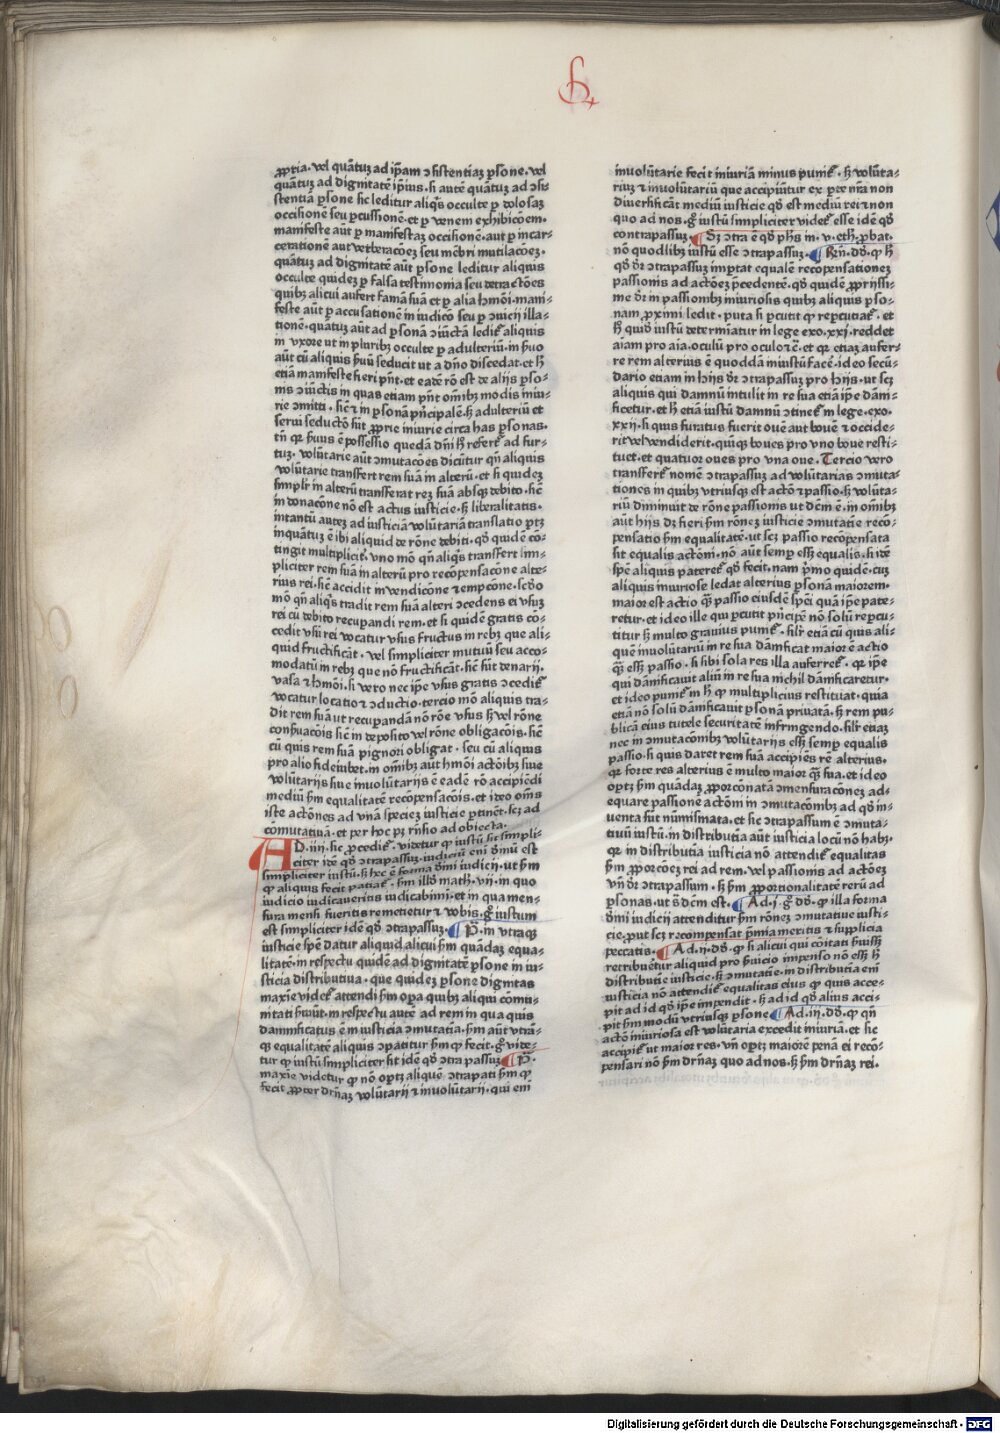 ꝓpria. vel quātuꝫ ad ip̄am ↄsistentiaꝫ ꝑsone. vel
quātuꝫ ad dignitatē ip̄ius. si autē quātuꝫ ad ↄsi-
stentiā ꝑsone sic leditur aliqͥs occulte ꝑ dolosaꝫ
occisionē seu ꝑcussionē. et ꝑ venem exhibicōem.
manifeste aūt ꝑ manifestaꝫ occisionē. aut ꝑ incar-
cerationē aut verberacōeꝫ seu mēbri mutilacōeꝫ.
quātuꝫ ad dignitatē aūt ꝑsone leditur aliquis
occulte quideꝫ ꝑ falsa testimonia seu detractōes
quibꝫ alicui aufert famā suā et ꝑ alia hmōi. mani-
feste aūt ꝑ accusationē in iudicō seu ꝑ ↄuicij illa-
tionē. quatuꝫ aūt ad ꝑsonā ↄiūctā ledit᷑ aliquis
in vxore ut in pluribꝫ occulte ꝑ adulteriū. in ẜuo
aūt cū aliquis ẜuū seducit ut a dn̄o discedat. et h̄
etiā manifeste fieri pn̄t. et eadē rō est de alijs ꝑso-
nis ↄiūctis in quas etiam pn̄t om̄ibꝫ modis iniu-
rie ↄmitti. sic̄ ⁊ in ꝑsonā pͥncipalē. sꝫ adulteriū et
serui seductō sūt ꝓprie iniurie circa has ꝑsonas.
tn̄ qꝛ ẜuus ē possessio quedā dn̄i h̄ refert᷑ ad fur-
tuꝫ. volūtarie aūt ↄmutacōes dicūtur qn̄ aliquis
volūtarie transfert rem suā in alterū. et si quideꝫ
simplr̄ in alterū transferat reꝫ suā absqꝫ debito. sic̄
in donacōne nō est actus iusticie. sꝫ liberalitatis.
intantū auteꝫ ad iusticiā volūtariā translatio ꝑtꝫ
inquātuꝫ ē ibi aliquid de rōne debiti. qd̄ quidē cō-
tingit multiplicit᷑. vno mō qn̄ aliqͥs transfert sim-
pliciter rem suā in alterū pro recōpensacōne alte-
rius rei. sic̄ accidit in vendicōne ⁊ empcōne. scd̄o
mō qn̄ aliqͥs tradit rem suā alteri ↄcedens ei vsuꝫ
rei cū debito recupandi rem. et si quidē gratis cō-
cedit vsū rei vocatur vsus fructus in rebꝫ que ali-
quid fructificāt. vel simpliciter mutuū seu acco-
modatū in rebꝫ que nō fructificāt. sic̄ sūt denarij.
vasa ⁊ hmōi. si vero nec ip̄e vsus gratis ↄcedit᷑
vocatur locatio ⁊ ↄductio. tercio mō aliquis tra-
dit rem suā ut recupandā nō rōe vsus sꝫ vel rōne
conẜuacōis sic̄ in deposito vel rōne obligacōis. sic̄
cū quis rem suā pignori obligat. seu cū aliquis
pro alio fideiubet. in om̄ibꝫ aūt hmōi actōibꝫ siue
volūtarijs siue inuolūtarijs ē eadē rō accipiēdi
mediū ẜm equalitatē recōpensacōis. et ideo om̄s
iste actōnes ad vnā specieꝫ iusticie ꝑtinēt. scꝫ ad
cōmutatiuā. et per hoc pꝫ rn̄sio ad obiecta.
AD .iiij. sic ꝓcedit᷑. videtur ꝙ iustū sit simpli-
citer idē qd̄ ↄtrapassuꝫ. iudiciū eni dimū est
simpliciter iustū. sꝫ hec ē forma diuini iudicij. ut ẜm
ꝙ aliquis fecit patiat᷑. ẜm illd̄ math. vij. in quo
iudicio iudicaueritis iudicabimi. et in qua men-
sura mensi fueritis remetietur ⁊ vobis. gͦ iustum
est simpliciter idē qd̄ ↄtrapassuꝫ. ¶ P̄. in vtraqꝫ
iusticie spē datur aliquid alicui ẜm quādaꝫ equa-
litatē. in respectu quidē ad dignitatē ꝑsone in iu-
sticia distributiua. que quideꝫ ꝑsone dignitas
maxīe videt᷑ attendi ẜm oꝑa quibꝫ aliqui cōmu-
nitati ẜuiūt. in respectu autē ad rem in qua quis
damnificatus ē in iusticia ↄmutatīa. ẜm aūt vtrā-
qꝫ equalitatē aliquis ↄpatitur ẜm ꝙ fecit. gͦ vide-
tur ꝙ iustū simpliciter sit idē qd̄ ↄtrapassuꝫ ¶ P̄.
maxie videtur ꝙ nō oꝑtꝫ aliquē ↄtrapati ẜm ꝙ
fecit ꝓpter drn̄aꝫ volūtarij ⁊ inuolūtarij. qui eni
inuolūtarie fecit iniuriā minus punit᷑. sꝫ volūta-
riuꝫ ⁊ inuolūtariū que accipiūtur ex ꝑte nr̄a non
diuersificāt mediū iusticie qd̄ est mediū rei ⁊ non
quo ad nos. gͦ iustū simpliciter videt᷑ esse idē qd̄
contrapassuꝫ. ¶ Sꝫ ↄtra ē qd̄ phs in .v. eth. ꝓbat.
nō quodlibꝫ iustū esse ↄtrapassuꝫ. ¶ Rn̄. dd̄. ꝙ h̄
qd̄ dr̄ ↄtrapassuꝫ imꝑtat equalē recōpensationeꝫ
passionis ad actōeꝫ p̄cedentē. qd̄ quidē ꝓprijssi-
me dr̄ in passionibꝫ iniuriosis quibꝫ aliquis ꝑso-
nam ꝓximi ledit. puta si ꝑcutit ꝙ reꝑcutiat᷑. et
h̄ quid iustū determiatur in lege exo. xxj. reddet
aiam pro aia. oculū pro oculo ⁊c̄. et qꝛ etiaꝫ aufer-
re rem alterius ē quoddā iniustū facē. ideo secū-
dario etiam in hijs dr̄ ↄtrapassuꝫ pro hijs. ut scꝫ
aliquis qui damnū intulit in re sua etiā ip̄e dām-
ficetur. et h̄ etiā iustū damnū ↄtinet᷑ in lege. exo.
xxij. si quis furatus fuerit ouē aut bouē ⁊ occide-
rit vel vendiderit. quīqꝫ boues pro vno boue resti-
tuet. et quatuor oues pro vna oue. Tercio vero
transfert᷑ nomē ↄtrapassuꝫ ad volūtarias ↄmuta-
tiones in quibꝫ vtriusqꝫ est actō ⁊ passio. sꝫ volūta-
riū diminuit de rōne passionis ut dc̄m ē. in om̄ibꝫ
aūt hijs dꝫ fieri ẜm rōneꝫ iusticie ↄmutatīe recō-
pensatio ẜm equalitatē. ut scꝫ passio recōpensata
sit equalis actōni. nō aūt semꝑ essꝫ equalis. si idē
spē aliquis pateret᷑ qd̄ fecit. nam pͥmo quidē. cuꝫ
aliquis iniuriose ledat alterius ꝑsonā maiorem.
maior est actio qͣꝫ passio eiusdē spēi quā ip̄e pate-
retur. et ideo ille qui ꝑcutit pͥncipē nō solū reꝑcu-
titur sꝫ multo grauius punit᷑. silr̄ etiā cū quis ali-
quē inuolūtariū in re sua dāmficat maior ē actio
qͣꝫ essꝫ passio. si sibi sola res illa auferret᷑. qꝛ ip̄e
qui dānificauit aliū in re sua nichil dāmficaretur.
et ideo punit᷑ in h̄ ꝙ multiplicius restituat. quia
etiā nō solū dāmficauit ꝑsonā priuatā. sꝫ rem pu-
blicā eius tutele securitatē infringendo. silr̄ etiaꝫ
nec in ↄmutacōnibꝫ volūtarijs essꝫ semꝑ equalis
passio. si quis daret rem suā accipiēs rē alterius.
qꝛ forte res alterius ē multo maior qͣꝫ sua. et ideo
oꝑtꝫ ẜm quādaꝫ ꝓporcōnatā ↄmensuracōneꝫ ad-
equare passionē actōni in ↄmutacōnibꝫ ad qd̄ in-
uenta sūt numismata. et sic ↄtrapassum ē ↄmuta-
tiuū iustū. in distributia aūt iusticia locū nō habꝫ.
qꝛ in distributia iusticia nō attendit᷑ equalitas
ẜm ꝓporcōeꝫ rei ad rem. vel passionis ad actōeꝫ
vn̄ dr̄ ↄtrapassum. sꝫ ẜm ꝓportionalitatē rerū ad
ꝑsonas. ut s̄ dc̄m est. ¶ Ad. j. gͦ dd̄. ꝙ illa forma
diuini iudicij attenditur ẜm rōneꝫ ↄmutatiue iusti-
cie. ꝓut scꝫ recompensat p̄mia meritis ⁊ supplicia
peccatis. ¶ Ad. ij. dd̄. ꝙ si alicui qui cōitati ẜuissꝫ
retribuetur aliquid pro ẜuicio impenso nō essꝫ h̄
distributiē iusticie. sꝫ ↄmutatīe. in distributia eni
iusticia nō attendit᷑ equalitas eius ꝙ quis acce-
pit ad id qd̄ ip̄e impendit. sꝫ ad id qd̄ alius acci-
pit ẜm modū vtriusqꝫ ꝑsone ¶ Ad. iij. dd̄. ꝙ qn̄
actō iniuriosa est volūtaria excedit iniuriā. et sic
accipit᷑ ut maior res. vn̄ oꝑtꝫ maiorē penā ei recō-
pensari nō ẜm drn̄aꝫ quo ad nos. sꝫ ẜm drn̄aꝫ rei.
Digitalisierung gefördert durch die Deutsche Forschungsgemeinschaft - DFG